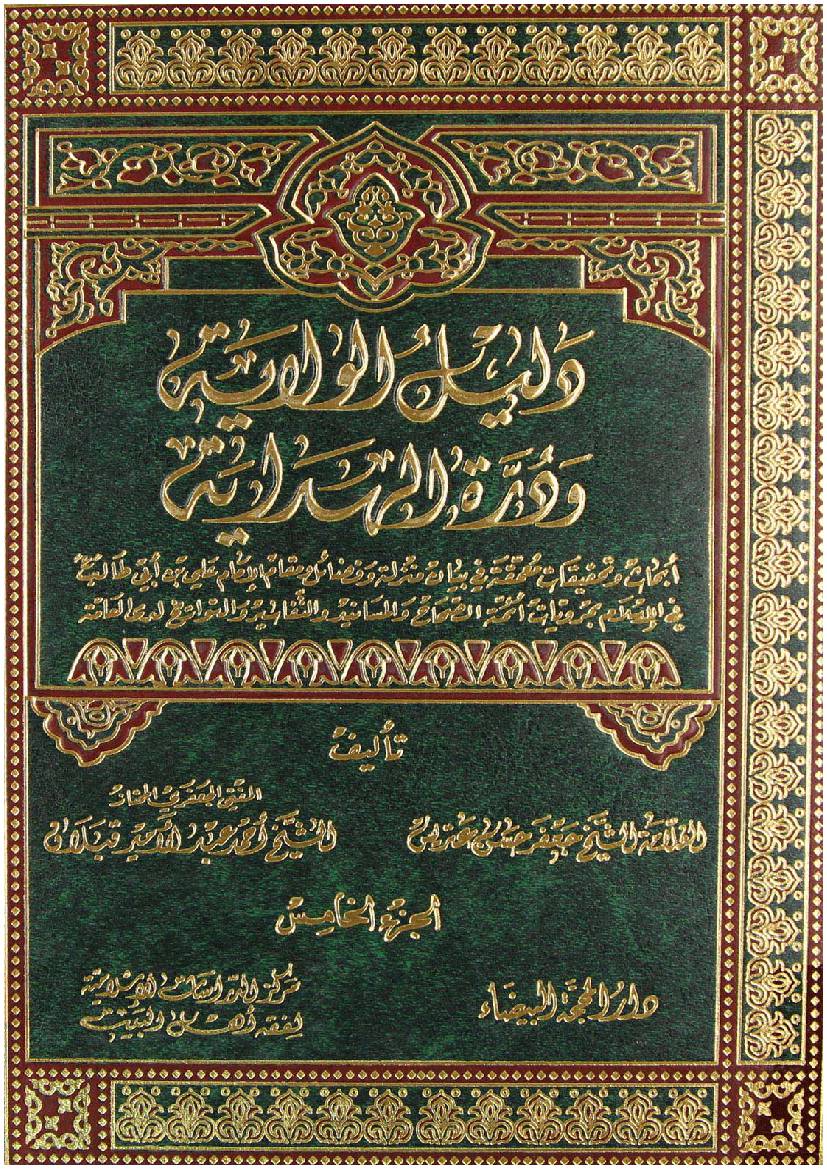 دَليلُ الولاية
وَدُرَّة الهداية
أبحاث وتحقيقات محققة في بيان منزلة وفضائل ومقام الإمام علي بن أبي طالب
في الإسلام بمرويات أئمة الصحاح والمسانيد والتفاسير والتواريخ لدى العامة
تأليف
المفتي الجعفري الممتاز
العلامة الشيخ جعفر حسن عتريس
الشيخ أحمد عبد الأمير قبلان
الجزء الخامس
دار المحجة البيضاء
مركز الدراسات الإسلامية
لفقه أهل البيت